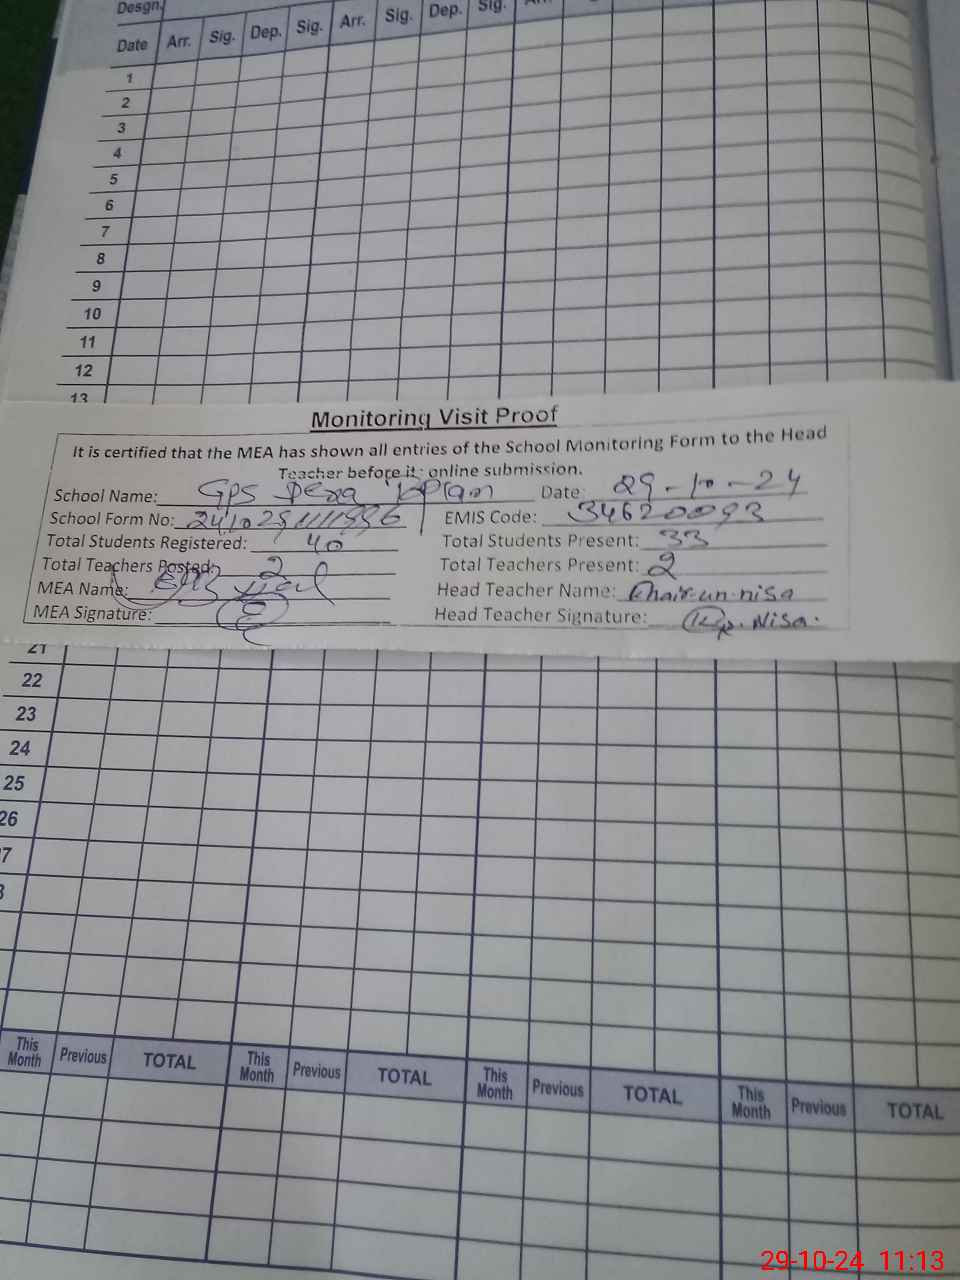 Desgn.
Date Arr. Sig. Dep. Sig. Arr. Sig. Dep. Sig.
1
2
3
4
5
6
7
8
9
10
11
12
13
Monitoring Visit Proof
It is certified that the MEA has shown all entries of the School Monitoring Form to the Head
Teacher before its online submission.
School Name: GPS Dera Date: 29-10-24
School Form No: EMIS Code: 34620093
Total Students Registered: 40 Total Students Present: 33
Total Teachers Posted: 2 Total Teachers Present: 2
MEA Name: Head Teacher Name: Khair-un-nisa
MEA Signature: Head Teacher Signature: Nisa.
21
22
23
24
25
26
This Month Previous TOTAL This Month Previous TOTAL This Month Previous TOTAL This Month Previous TOTAL
29-10-24 11:13